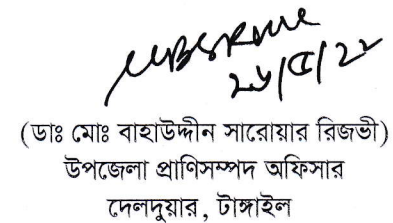 ২৬/৫/২২
(ডাঃ মোঃ বাহাউদ্দীন সারোয়ার রিজভী)
উপজেলা প্রাণিসম্পদ অফিসার
দেলদুয়ার, টাঙ্গাইল